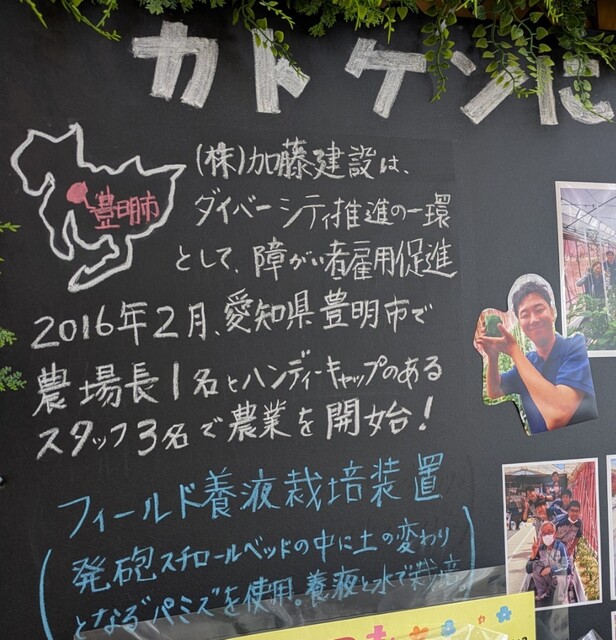 カトケンに
(株)加藤建設は、
ダイバーシティ推進の一環
として、障がい者雇用促進
豊明市
2016年2月、愛知県豊明市で
農場長1名とハンディーキャップのある
スタッフ3名で農業を開始!
フィールド養液栽培装置
(発砲スチロールベッドの中に土の変わり
となる"パミズ"を使用。養液と水で栽培